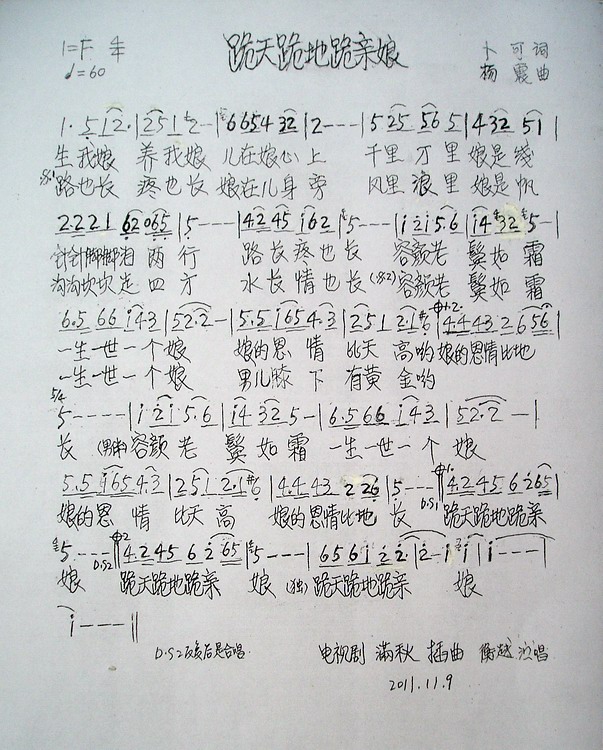 跪天跪地跪亲娘
1=F
♩=60
卜可词
杨霞曲
1·512·|2512-|665432|2---|525565|43251|
生我娘 养我娘 儿在娘心上 千里万里娘是线
路也长 疼也长 娘在儿身旁 风里浪里娘是帆
2221 62065|5---|4245i62|5---|i2i5·6|i4325-|
针针脚脚泪两行 路长疼也长 容颜老 鬓如霜
沟沟坎坎走四方 水长情也长 容颜老 鬓如霜
6·566i43|52·2-|5·5i654·3|2512·16|4·44322656|
一生一世一个娘 娘的恩情比天高哟娘的恩情比地
一生一世一个娘 男儿膝下有黄金哟
5/4
5----|i2i5·6|i4325-|6·566i43|52·2-|
长 容颜老 鬓如霜 一生一世一个娘
5·5i654·3|2512·16|4·443226|5---|4·2456265|
娘的恩情比天高 娘的恩情比地长 跪天跪地跪亲
5---|4·2456265|5---|656i22|2-i i|i---|
娘 跪天跪地跪亲娘 (独)跪天跪地跪亲娘
i---||
D.S2反复后是合唱 电视剧 满秋 插曲 衡越演唱
2011.11.9